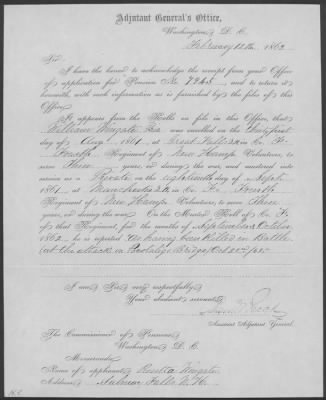 Adjutant General's Office,
Washington, D. C.
February 1863
Sir:
I have the honor to acknowledge the receipt from your Office
of application for Pension No. and to return it
herewith, with such information as is furnished by the files of this
Office.
It appears from the Rolls on file in this Office, that
William Wingate was enrolled on the
day of Augt. 1861, at Great Falls in Co. F.
Fourth Regiment of New Hamps. Volunteers, to
serve three years, or during the war, and mustered into
service as a Private on the eighteenth day of Sept.
1861, at Manchester in Co. F. Fourth
Regiment of New Hamps. Volunteers, to serve three
years, or during the war. On the Muster Roll of Co. F.
of that Regiment, for the months of September & October
1862, he is reported "as having been killed in Battle
at the Attack on Pocotaligo Bridge Oct 22nd 1862"
I am, Sir, very respectfully,
Your obedient servant,
Assistant Adjutant General.
The Commissioner of Pensions,
Washington, D. C.
Memoranda:
Name of applicant, Wingate
Address, Falls N. H.